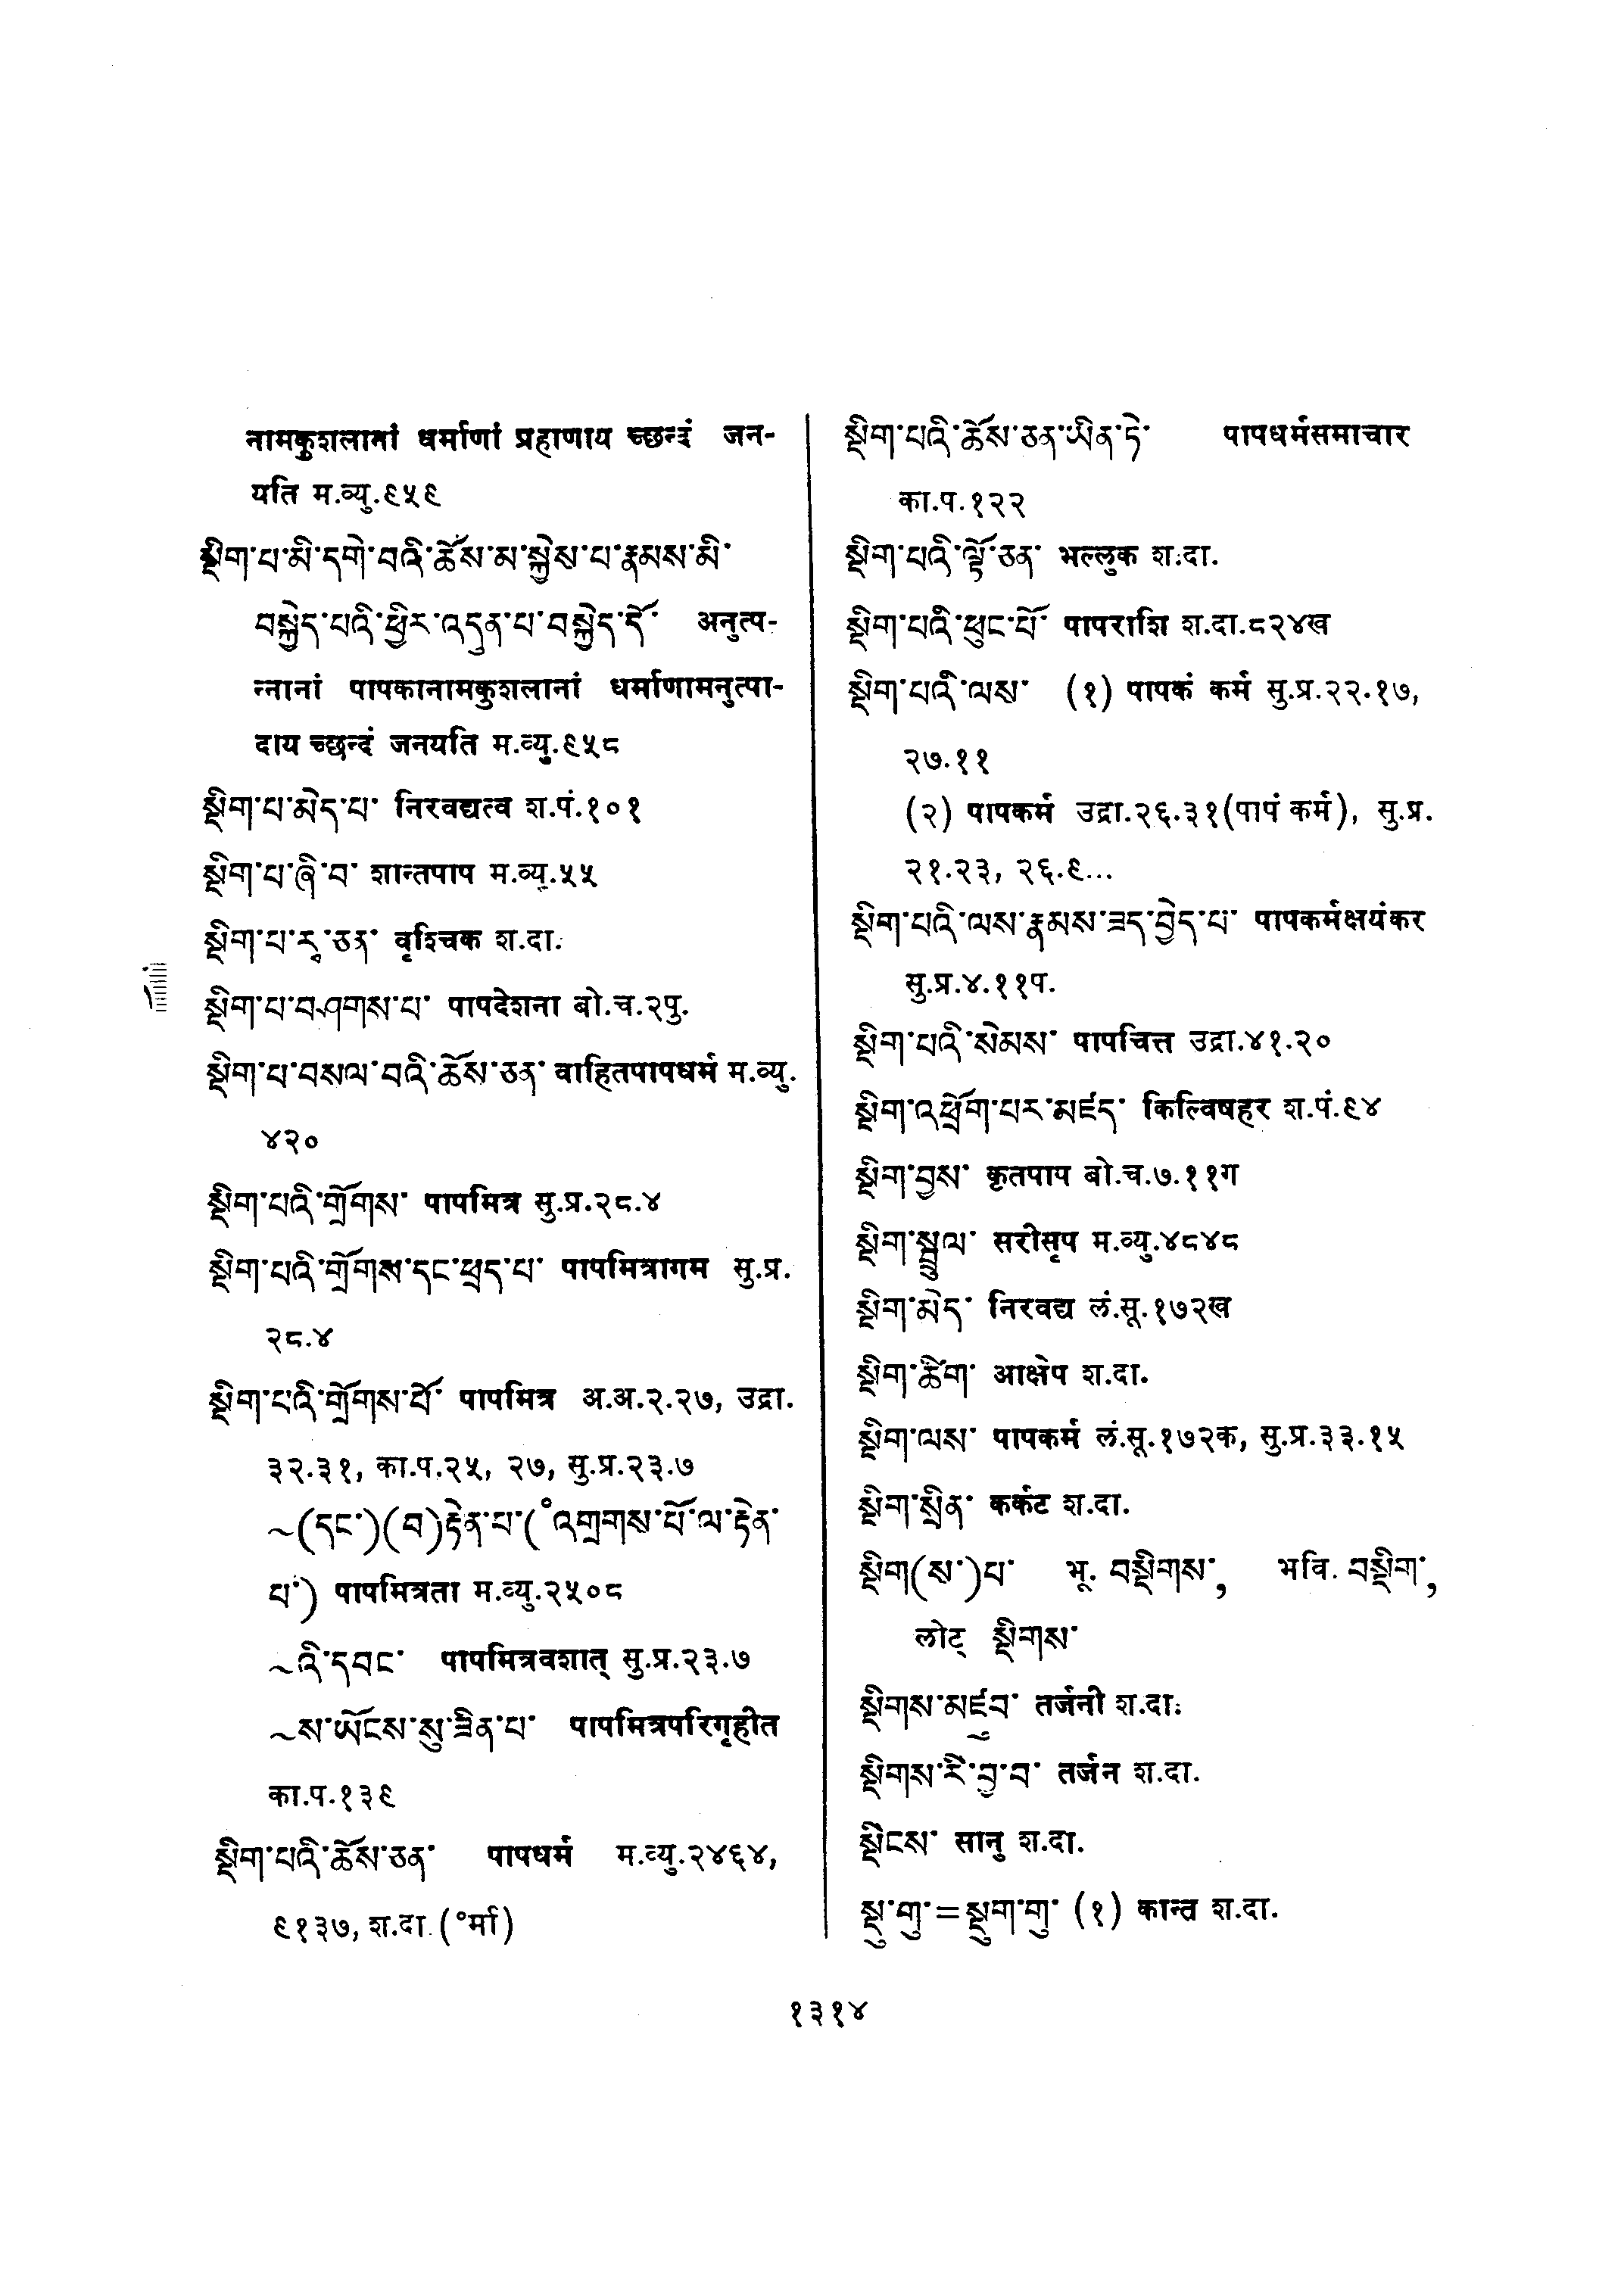 नामकुशलानां धर्माणां प्रहाणाय च्छन्दं जन-
यति म.व्यु.९५९
སྡིག་པ་མི་དགེ་བའི་ཆོས་མ་སྐྱེས་པ་རྣམས་མི་
བསྐྱེད་པའི་ཕྱིར་འདུན་པ་བསྐྱེད་དོ་ अनुत्प-
न्नानां पापकानामकुशलानां धर्माणामनुत्पा-
दाय च्छन्दं जनयति म.व्यु.९५८
སྡིག་པ་མེད་པ་ निरवद्यत्व श.पं.१०१
སྡིག་པ་ཞི་བ་ शान्तपाप म.व्यु.५५
སྡིག་པ་རྭ་ཅན་ वृश्चिक श.दा.
སྡིག་པ་བཤགས་པ་ पापदेशना बो.च.२पु.
སྡིག་པ་བསལ་བའི་ཆོས་ཅན་ वाहितपापधर्म म.व्यु.
४२०
སྡིག་པའི་གྲོགས་ पापमित्र सु.प्र.२८.४
སྡིག་པའི་གྲོགས་དང་ཕྲད་པ་ पापमित्रागम सु.प्र.
२८.४
སྡིག་པའི་གྲོགས་པོ་ पापमित्र अ.अ.२.२७, उद्रा.
३२.३१, का.प.२५, २७, सु.प्र.२३.७
~(དང་)(བ)རྟེན་པ་(°འིགྲགས་པོ་ལ་རྟེན་
པ་) पापमित्रता म.व्यु.२५०८
~འི་དབང་ पापमित्रवशात् सु.प्र.२३.७
~ས་ཡོངས་སུ་ཟིན་པ་ पापमित्रपरिगृहीत
का.प.१३९
སྡིག་པའི་ཆོས་ཅན་ पापधर्म म.व्यु.२४६४,
९१३७, श.दा.(°र्मा)
སྡིག་པའི་ཆོས་ཅན་ཡིན་ཏེ་ पापधर्मसमाचार
का.प.१२२
སྡིག་པའི་ལྟོ་ཅན་ भल्लुक श.दा.
སྡིག་པའི་ཕུང་པོ་ पापराशि श.दा.८२४ख
སྡིག་པའི་ལས་ (१) पापकं कर्म सु.प्र.२२.१७,
२७.११
(२) पापकर्म उद्रा.२६.३१(पापं कर्म), सु.प्र.
२१.२३, २६.९...
སྡིག་པའི་ལས་རྣམས་ཟད་བྱེད་པ་ पापकर्मक्षयंकर
सु.प्र.४.११प.
སྡིག་པའི་སེམས་ पापचित्त उद्रा.४१.२०
སྡིག་འཕྲོག་པར་མཛད་ किल्विषहर श.पं.९४
སྡིག་བྱས་ कृतपाप बो.च.७.११ग
སྡིག་སྦྲུལ་ सरीसृप म.व्यु.४८४८
སྡིག་མེད་ निरवद्य लं.सू.१७२ख
སྡིག་ཚིག་ आक्षेप श.दा.
སྡིག་ལས་ पापकर्म लं.सू.१७२क, सु.प्र.३३.१५
སྡིག་སྲིན་ कर्कट श.दा.
སྡིག(ས་)པ་ भू. བསྡིགས་, भवि. བསྡིག་,
लोट् སྡིགས་
སྡིགས་མཛུབ་ तर्जनी श.दा.
སྡིགས་རི་བྱ་བ་ तर्जन श.दा.
སྡིངས་ सानु श.दा.
སྡུ་གུ་=སྡུག་གུ་ (१) कान्त श.दा.
१३१४